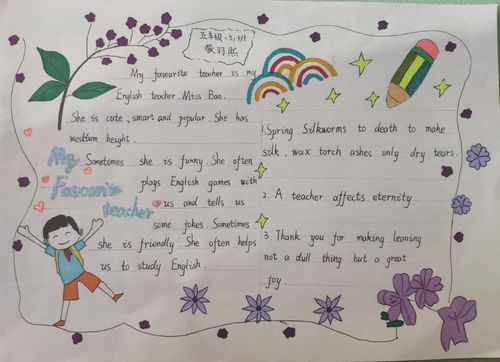 五年级(3)班
My favourite teacher is my
English teacher. Miss Bao.
She is cute, smart and popular. She has
medium height.
Sometimes she is funny. She often
plays English games with
us and tells us
some jokes. Sometimes
she is friendly. She often helps
us to study English.
My
Favourite
teacher
1.Spring Silkworms to death to make
silk, wax torch ashes only dry tears.
2. A teacher affects eternity.
3. Thank you for making learning
not a dull thing but a great
joy.